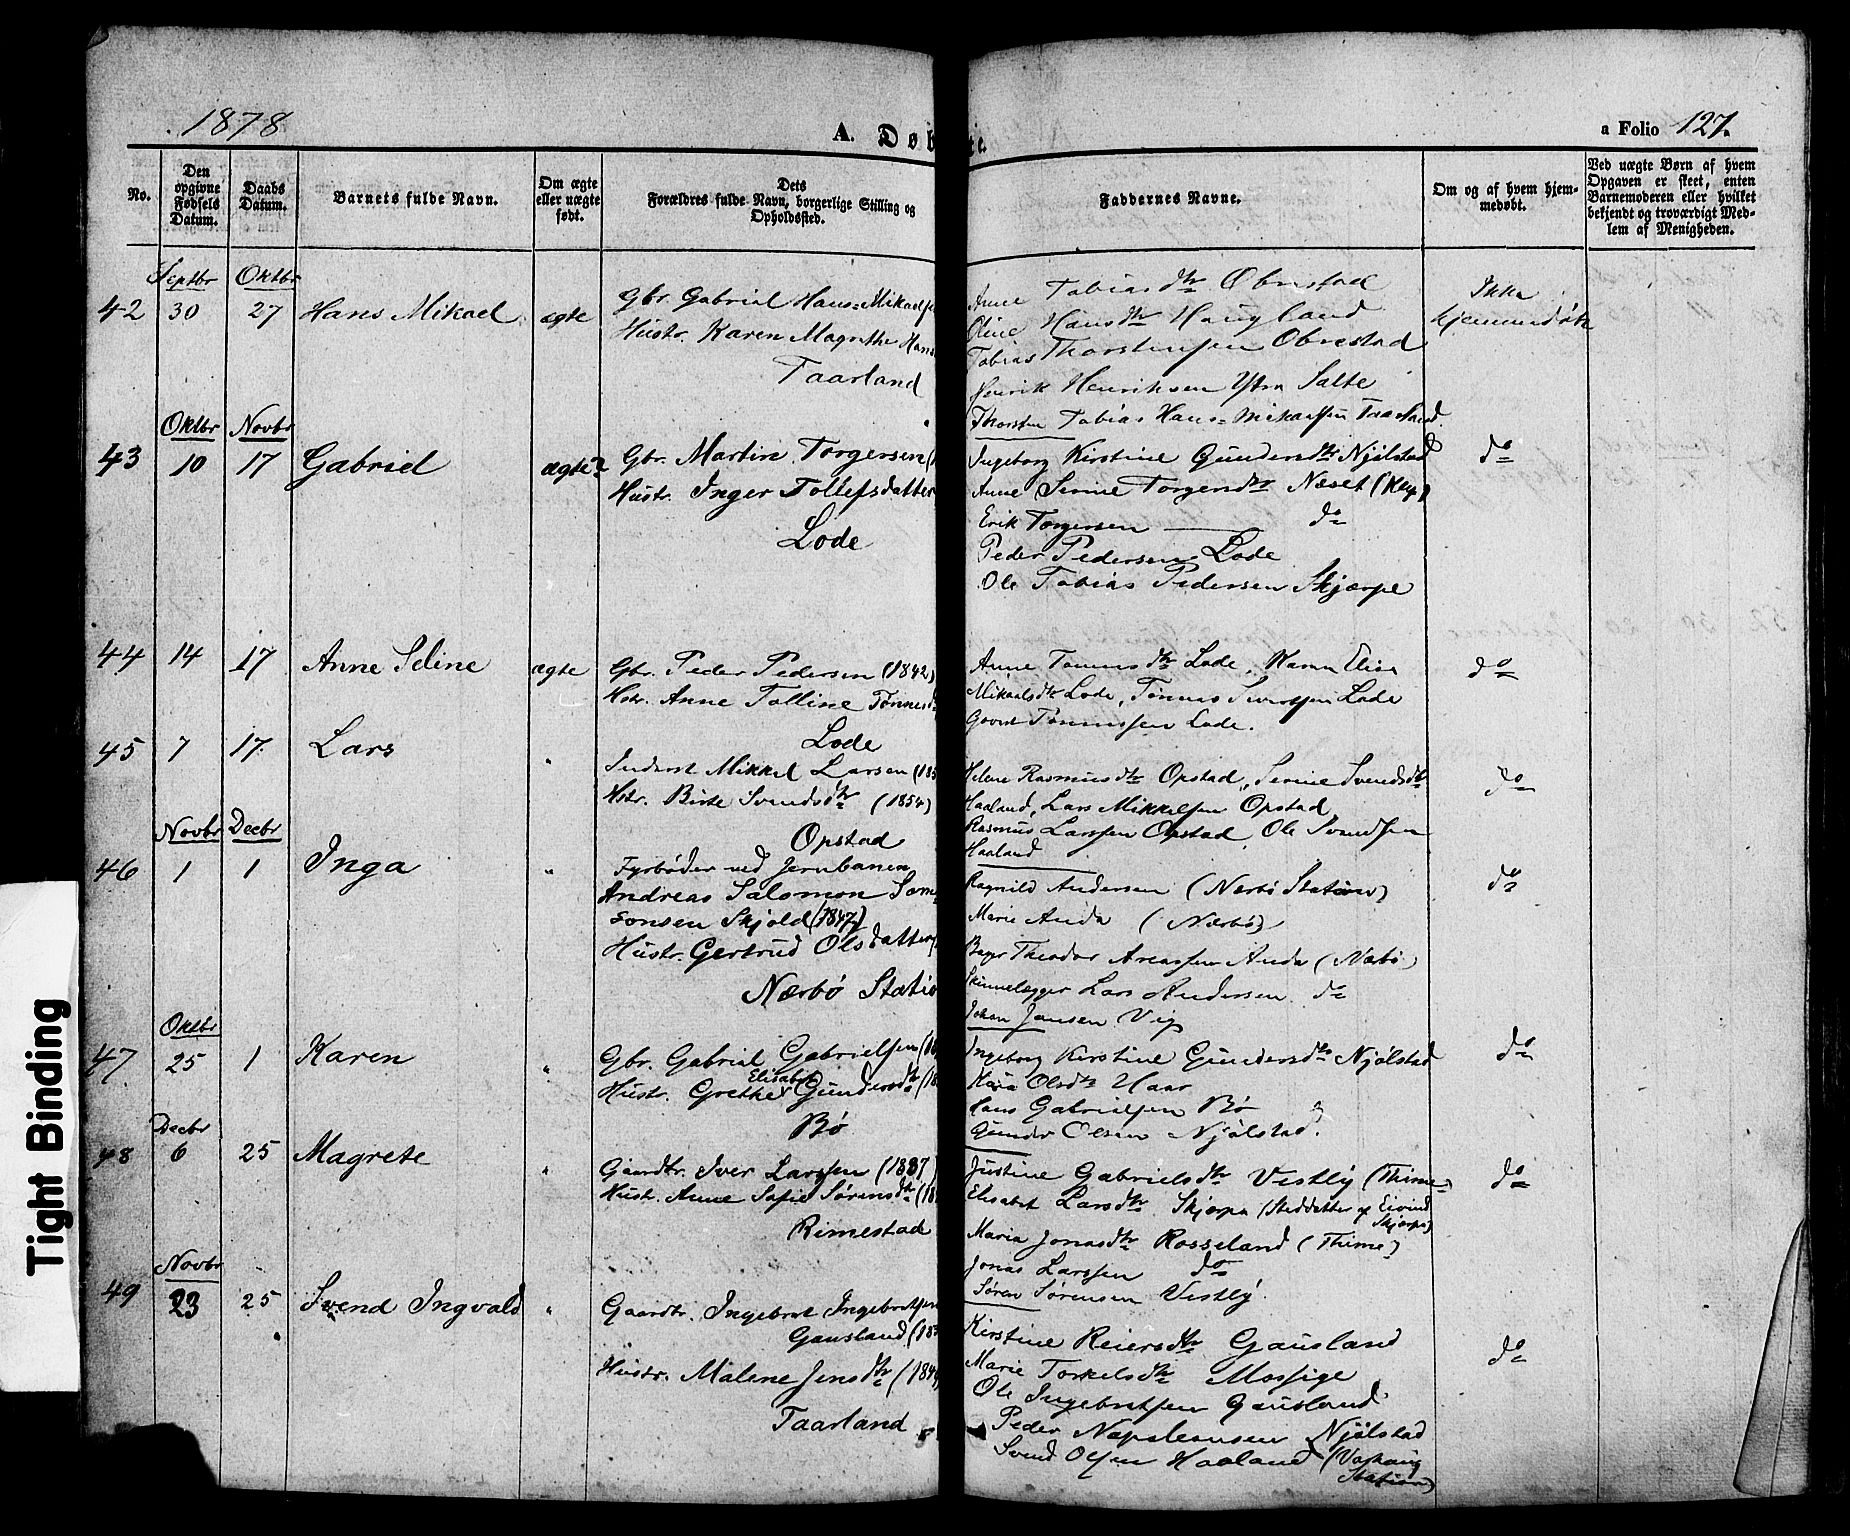 1878
A. Døb
te.
a Folio 127.
No.
Den opgivne Fødsels Datum.
Daabs Datum.
Barnets fulde Navn.
Om ægte eller uægte født.
Dets Forældres fulde Navn, borgerlige Stilling og Opholdssted.
Faddernes Navne.
Om og af hvem hjemmedøbt.
Ved uægte Børn af hvem Opgaven er skeet, enten Barnemoderen eller hvilket bekjendt og troværdigt Medlem af Menigheden.
Septbr Oktbr
42 30 27 Hans Mikael ægte
Gbr. Gabriel Hans=Mikaels
Hustr. Karen Magrethe Hans
Taarland
Anne Tobiasdtr Obrestad
Oline Hansdtr Haugland
Tobias Thorstensen Obrestad
Henrik Henriksen Ytre Salte
Thorsten Tobias Hans=Mikaelsen Taarland.
Ikke
hjemmedøbt
Oktbr Novbr
43 10 17 Gabriel ægte
Gbr. Martin Torgersen (
Hustr. Inger Tollefsdatter
Lode
Ingeborg Kirstine Gundersdtr Njølstad
Anne Serine Torgersdtr Næset (Klep)
Erik Torgersen do
Peder Pedersen Lode
Ole Tobias Pedersen Skjærpe
do
44 14 17 Anne Seline ægte
Gbr. Peder Pedersen (1842)
Hstr. Anne Tolline Tønnesd
Lode
Anne Tønnesdtr Lode, Karen Elise
Mikaelsdtr Lode, Tønnes Sivertsen Lode
Govert Tønnessen Lode.
do
45 7 17. Lars "
Inderst Mikkel Larsen (185
Hstr. Birte Svendsdtr (1854)
Opstad
Helene Rasmusdtr Opstad, Serine Svendsdtr
Haaland, Lars Mikkelsen Opstad
Rasmus Larssen Opstad, Ole Svendsen
Haaland
do
Novbr Decbr
46 1 1 Inga "
Fyrbøder ved Jernbanen
Andreas Salomon Sam
sonsen Skjold (1847)
Hustr. Gertrud Olsdatter
Nærbø Statio
Ragnild Andersen (Nærbø Station)
Marie Anda (Nærbø)
Theodor Areassen Anda (Nærbø)
Skinnelægger Lars Andersen do
Johan Jansen Vig
do
Oktbr
47 25 1 Karen "
Gbr. Gabriel Gabrielsen (18
Hustr. Grethe Elisabet Gundersdtr (18
Bø
Ingeborg Kirstine Gundersdtr Njølstad
Olsdtr Haar
Hans Gabrielsen Bø
Gunder Olsen Njølstad.
do
Decbr
48 6 25 Magrete "
Gaardbr. Iver Larssen (1837)
Hustr. Anne Sofie Sørensdtr (18
Rimestad
Justine Gabrielsdtr Vestly (Thime)
Elisabet Larsdtr Skjærpe (Steddatter af Eivind
Skjærpe)
Maria Jonasdtr Rosseland (Thime)
Jonas Larssen do
Søren Sørensen Vestly.
do
Novbr
49 23 25 Svend Ingvald "
Gaardbr. Ingebret Ingebretsen
Gausland (18
Hustr. Malene Jensdtr (184
Taarland
Kirstine Reiersdtr Gausland
Marie Torkelsdtr Mossige
Ole Ingebretsen Gausland
Peder Napoleonsen Njølstad
Svend Olsen Haaland (Varhaug
Station)
do
Tight Binding